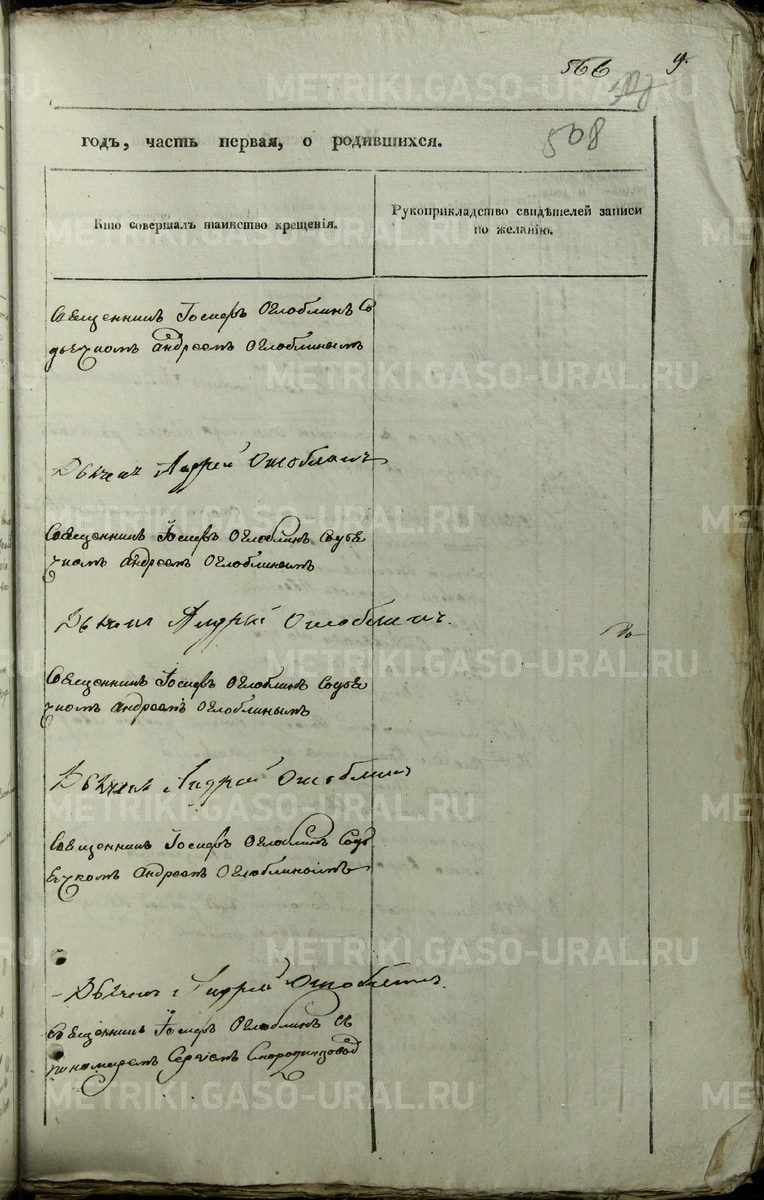 566
9.
508
годъ, часть первая, о родившихся.
Кто совершалъ таинство крещенія.
Рукоприкладство свидѣтелей записи
по желанію.
Священникъ Іосифъ Оглоблинъ Со
дьячкомъ Андреемъ Оглоблинымъ
Дьячекъ Андрей Оглоблинъ
Священникъ Іосифъ Оглоблинъ Содья
чкомъ Андреемъ Оглоблинымъ
Дьячекъ Андрей Оглоблинъ.
Священникъ Іосифъ Оглоблинъ Содья
чкомъ Андреемъ Оглоблинымъ
Дьячекъ Андрей Оглоблинъ
Священникъ Іосифъ Оглоблинъ Содь
ячкомъ Андреемъ Оглоблинымъ
Дьячекъ Андрей Оглоблинъ.
Священникъ Іосифъ Оглоблинъ съ
пономаремъ Сергіемъ
METRIKI.GASO-URAL.RU